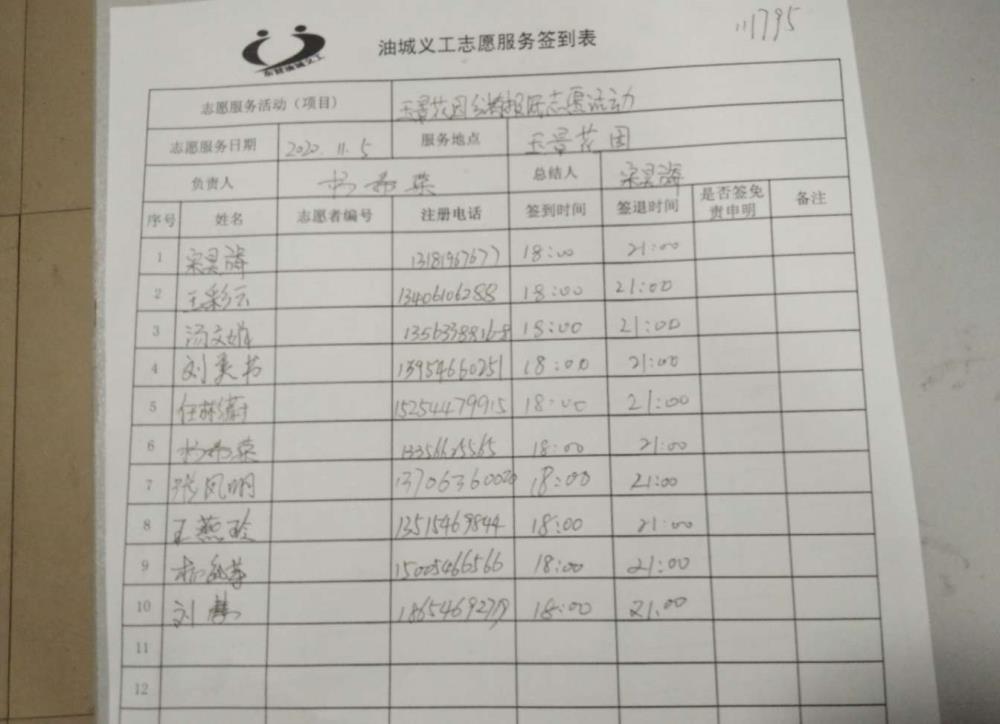 油城义工志愿服务签到表
东营油城义工
志愿服务活动（项目） 玉景花园
志愿服务日期 2020.11.5 服务地点 玉景花园
负责人 总结人 宋昊海
序号 姓名 志愿者编号 注册电话 签到时间 签退时间 是否签免责申明 备注
1 宋昊海 13181967677 18:00 21:00
2 王彩云 13406106288 18:00 21:00
3 汤文娟 13563388168 18:00 21:00
4 刘 书 13954660251 18:00 21:00
5 任 15254479915 18:00 21:00
6 18:00 21:00
7 张凤明 18:00 21:00
8 王燕玲 13515469844 18:00 21:00
9 15005466566 18:00 21:00
10 刘 18:00 21:00
11
12